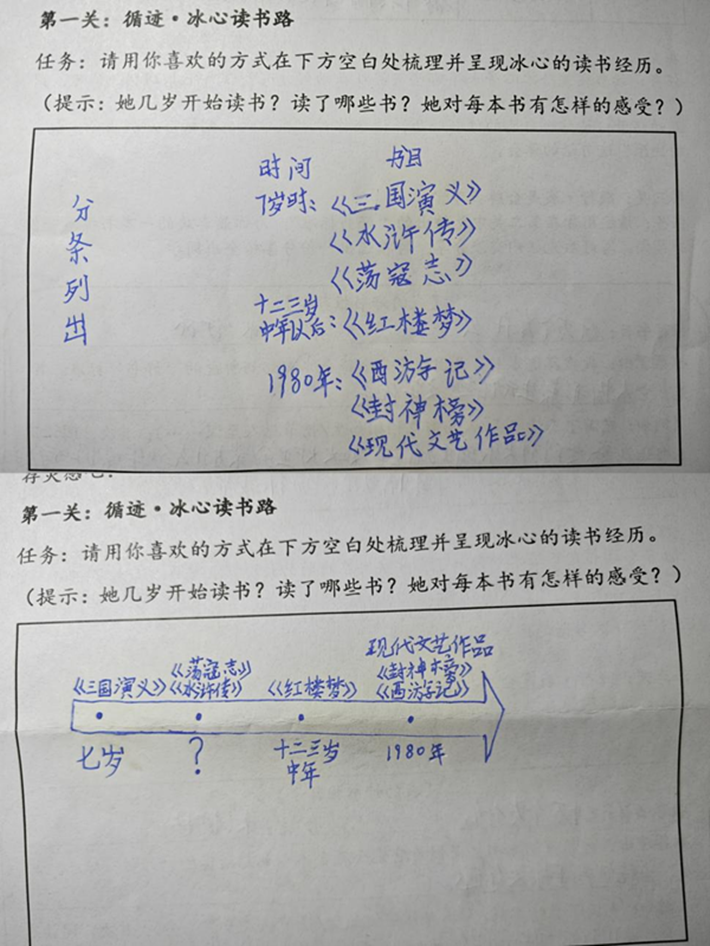 第一关：循迹·冰心读书路
任务：请用你喜欢的方式在下方空白处梳理并呈现冰心的读书经历。
（提示：她几岁开始读书？读了哪些书？她对每本书有怎样的感受？）
分条列出
时间 书目
7岁时：《三国演义》
《水浒传》
《荡寇志》
十二三岁
中年以后：《红楼梦》
1980年：《西游记》
《封神榜》
《现代文艺作品》
第一关：循迹·冰心读书路
任务：请用你喜欢的方式在下方空白处梳理并呈现冰心的读书经历。
（提示：她几岁开始读书？读了哪些书？她对每本书有怎样的感受？）
现代文艺作品
《荡寇志》 《封神榜》
《三国演义》 《水浒传》 《红楼梦》 《西游记》
七岁 ？ 十二三岁 1980年
中年